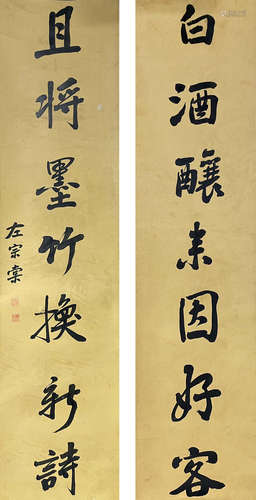 白酒釀來因好客
且将墨竹換新詩
左宗棠